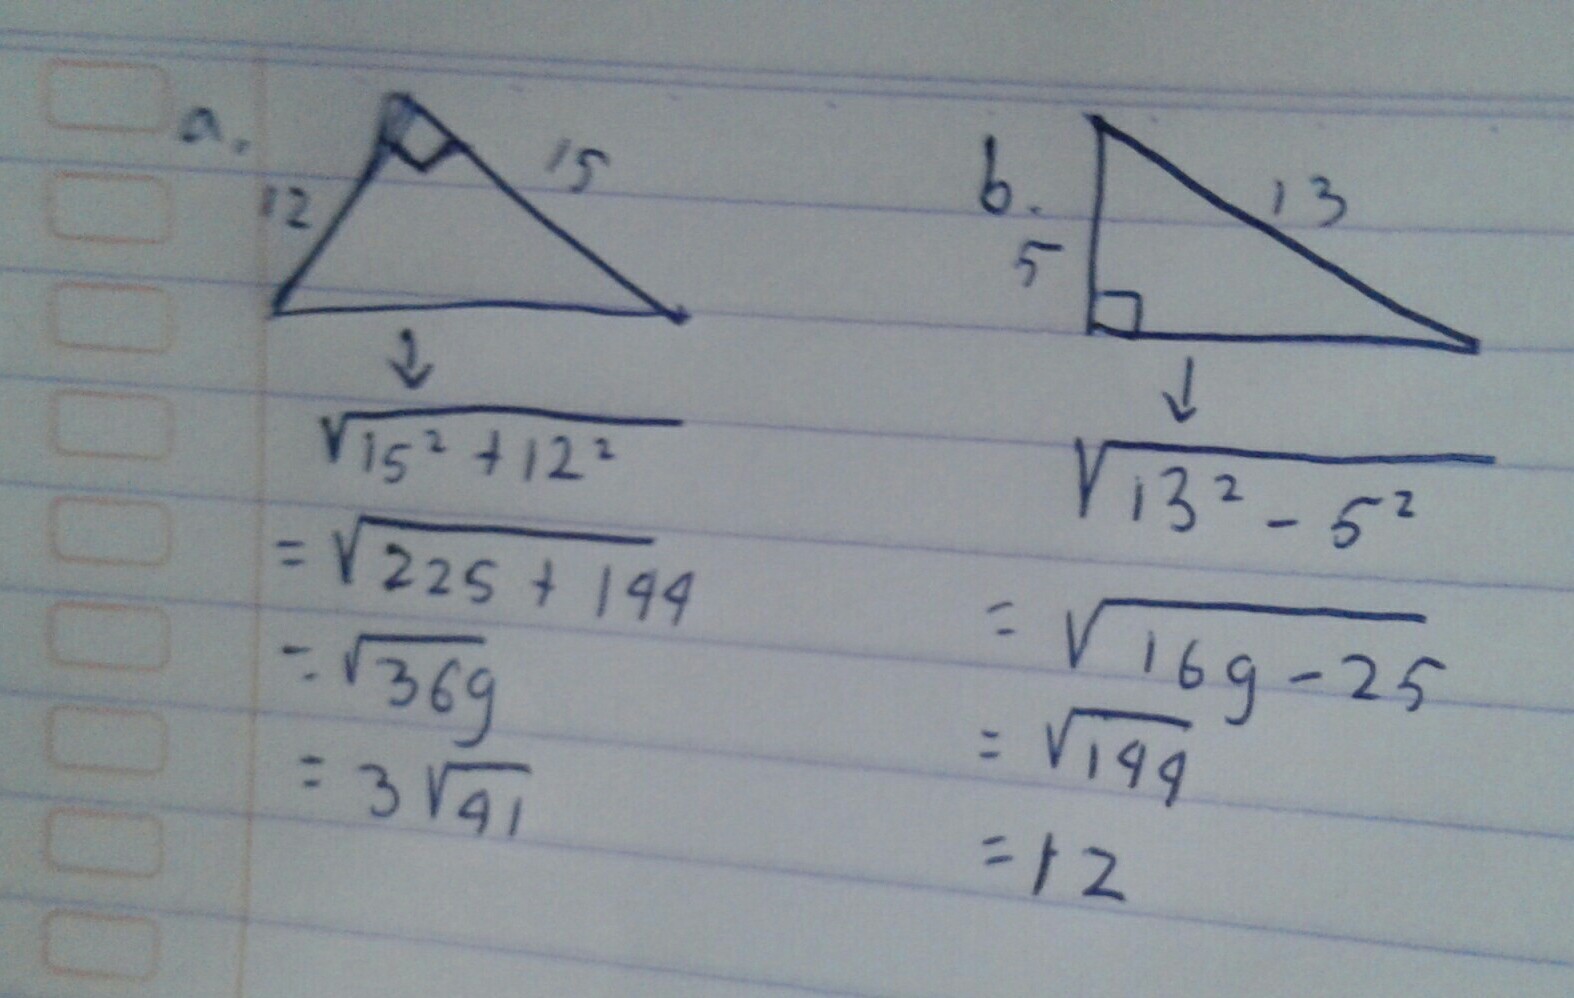 a.
12
15
√15² + 12²
= √225 + 144
= √369
= 3√41
b.
13
5
√13² - 5²
= √169 - 25
= √144
= 12